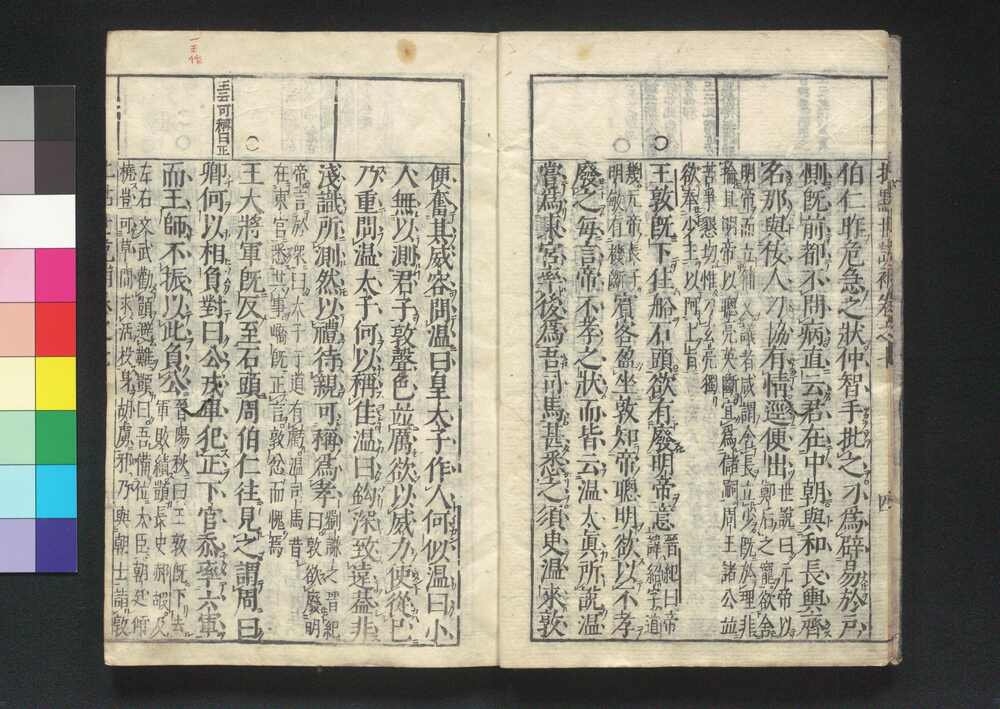 伯仁昨危急之狀仲智手批之刁爲辟易於戶
側既前都不問病直云君在中朝與和長輿齊
名那與佞人刁協有情逕便出
世說曰元帝以
鄭后之寵欲舍
明帝而立簡文議者咸謂舍長立少既於理非
倫且明帝以聰亮英斷宜爲儲嗣周王諸公並
苦爭懇切惟刁玄亮獨
欲奉少主以阿上旨
王敦既下住船石頭欲有廢明帝意
晉紀曰帝
諱紹字道
畿元帝長子
明敏有機斷
賓客盈坐敦知帝聰明欲以不孝
廢之每言帝不孝之狀而皆云溫太眞所說溫
嘗爲東宮率後爲吾司馬甚悉之須臾溫來敦
四
便奮其威容問溫曰皇太子作人何似溫曰小
人無以測君子敦聲色並厲欲以威力使從己
乃重問溫太子何以稱佳溫曰鉤深致遠蓋非
淺識所測然以禮侍親可稱爲孝
劉謙之晉紀
曰敦欲廢明
帝言於衆曰太子子道有虧溫司馬昔
在東宮悉其事嶠既正言敦忿而愧焉
王大將軍既反至石頭周伯仁往見之謂周曰
卿何以相負對曰公戎車犯正下官忝率六軍
而王師不振以此負公
晉陽秋曰王敦既下六
軍敗績顗長史郝嘏及
左右文武勸顗避難顗曰吾備位大臣朝廷傾
橈豈可草間求活投身胡虜邪乃與朝士詣敦
王云可稱曰正
一王作